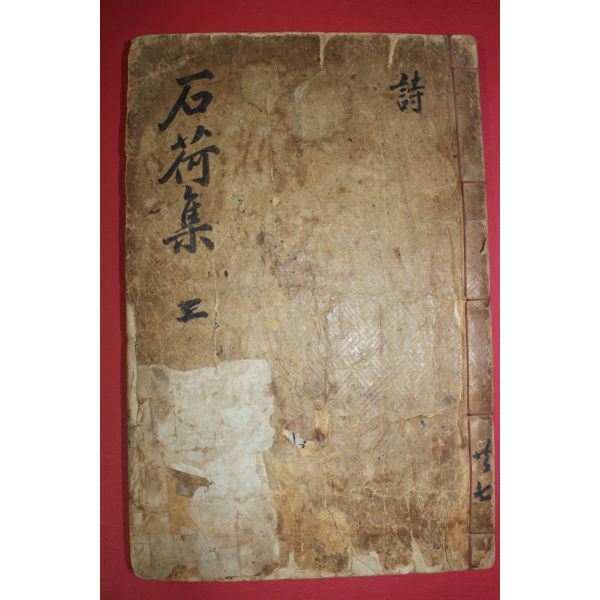 詩
石荷集 上
共七